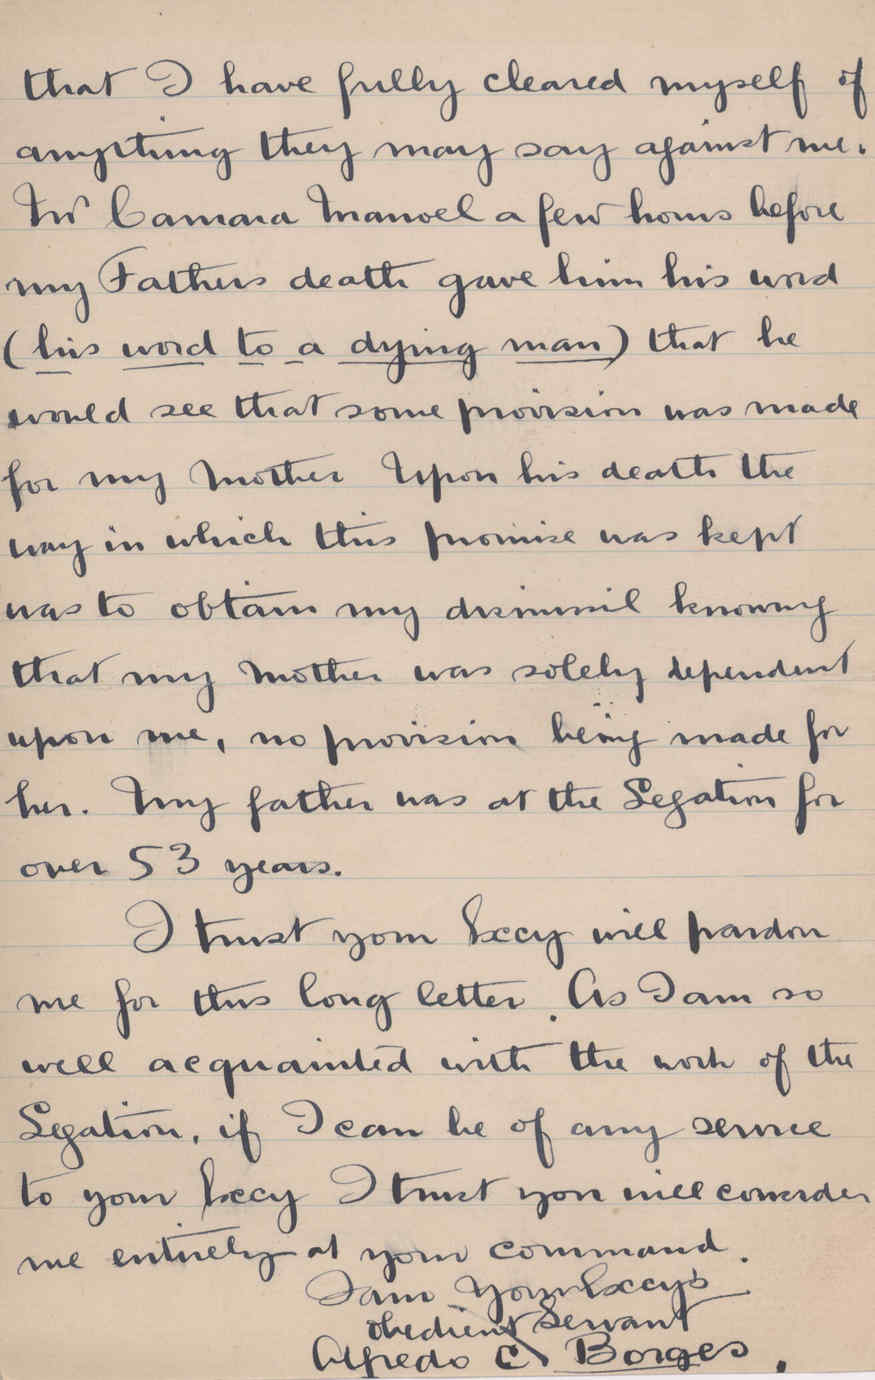 that I have fully cleared myself of
anything they may say against me.
Mr Camara Manoel a few hours before
my Fathers death gave him his word
(his word to a dying man) that he
would see that some provision was made
for my Mother Upon his death the
way in which this promise was kept
was to obtain my dismissil knowing
that my mother was solely dependent
upon me, no provision being made for
her. My father was at the Legation for
over 53 years.
I trust your Exccy will pardon
me for this long letter. As I am so
well acquainted with the work of the
Legation, if I can be of any service
to your Exccy I trust you will consider
me entirely at your command.
I am Your Exccy's
obedient Servant
Alfredo C. Borges.